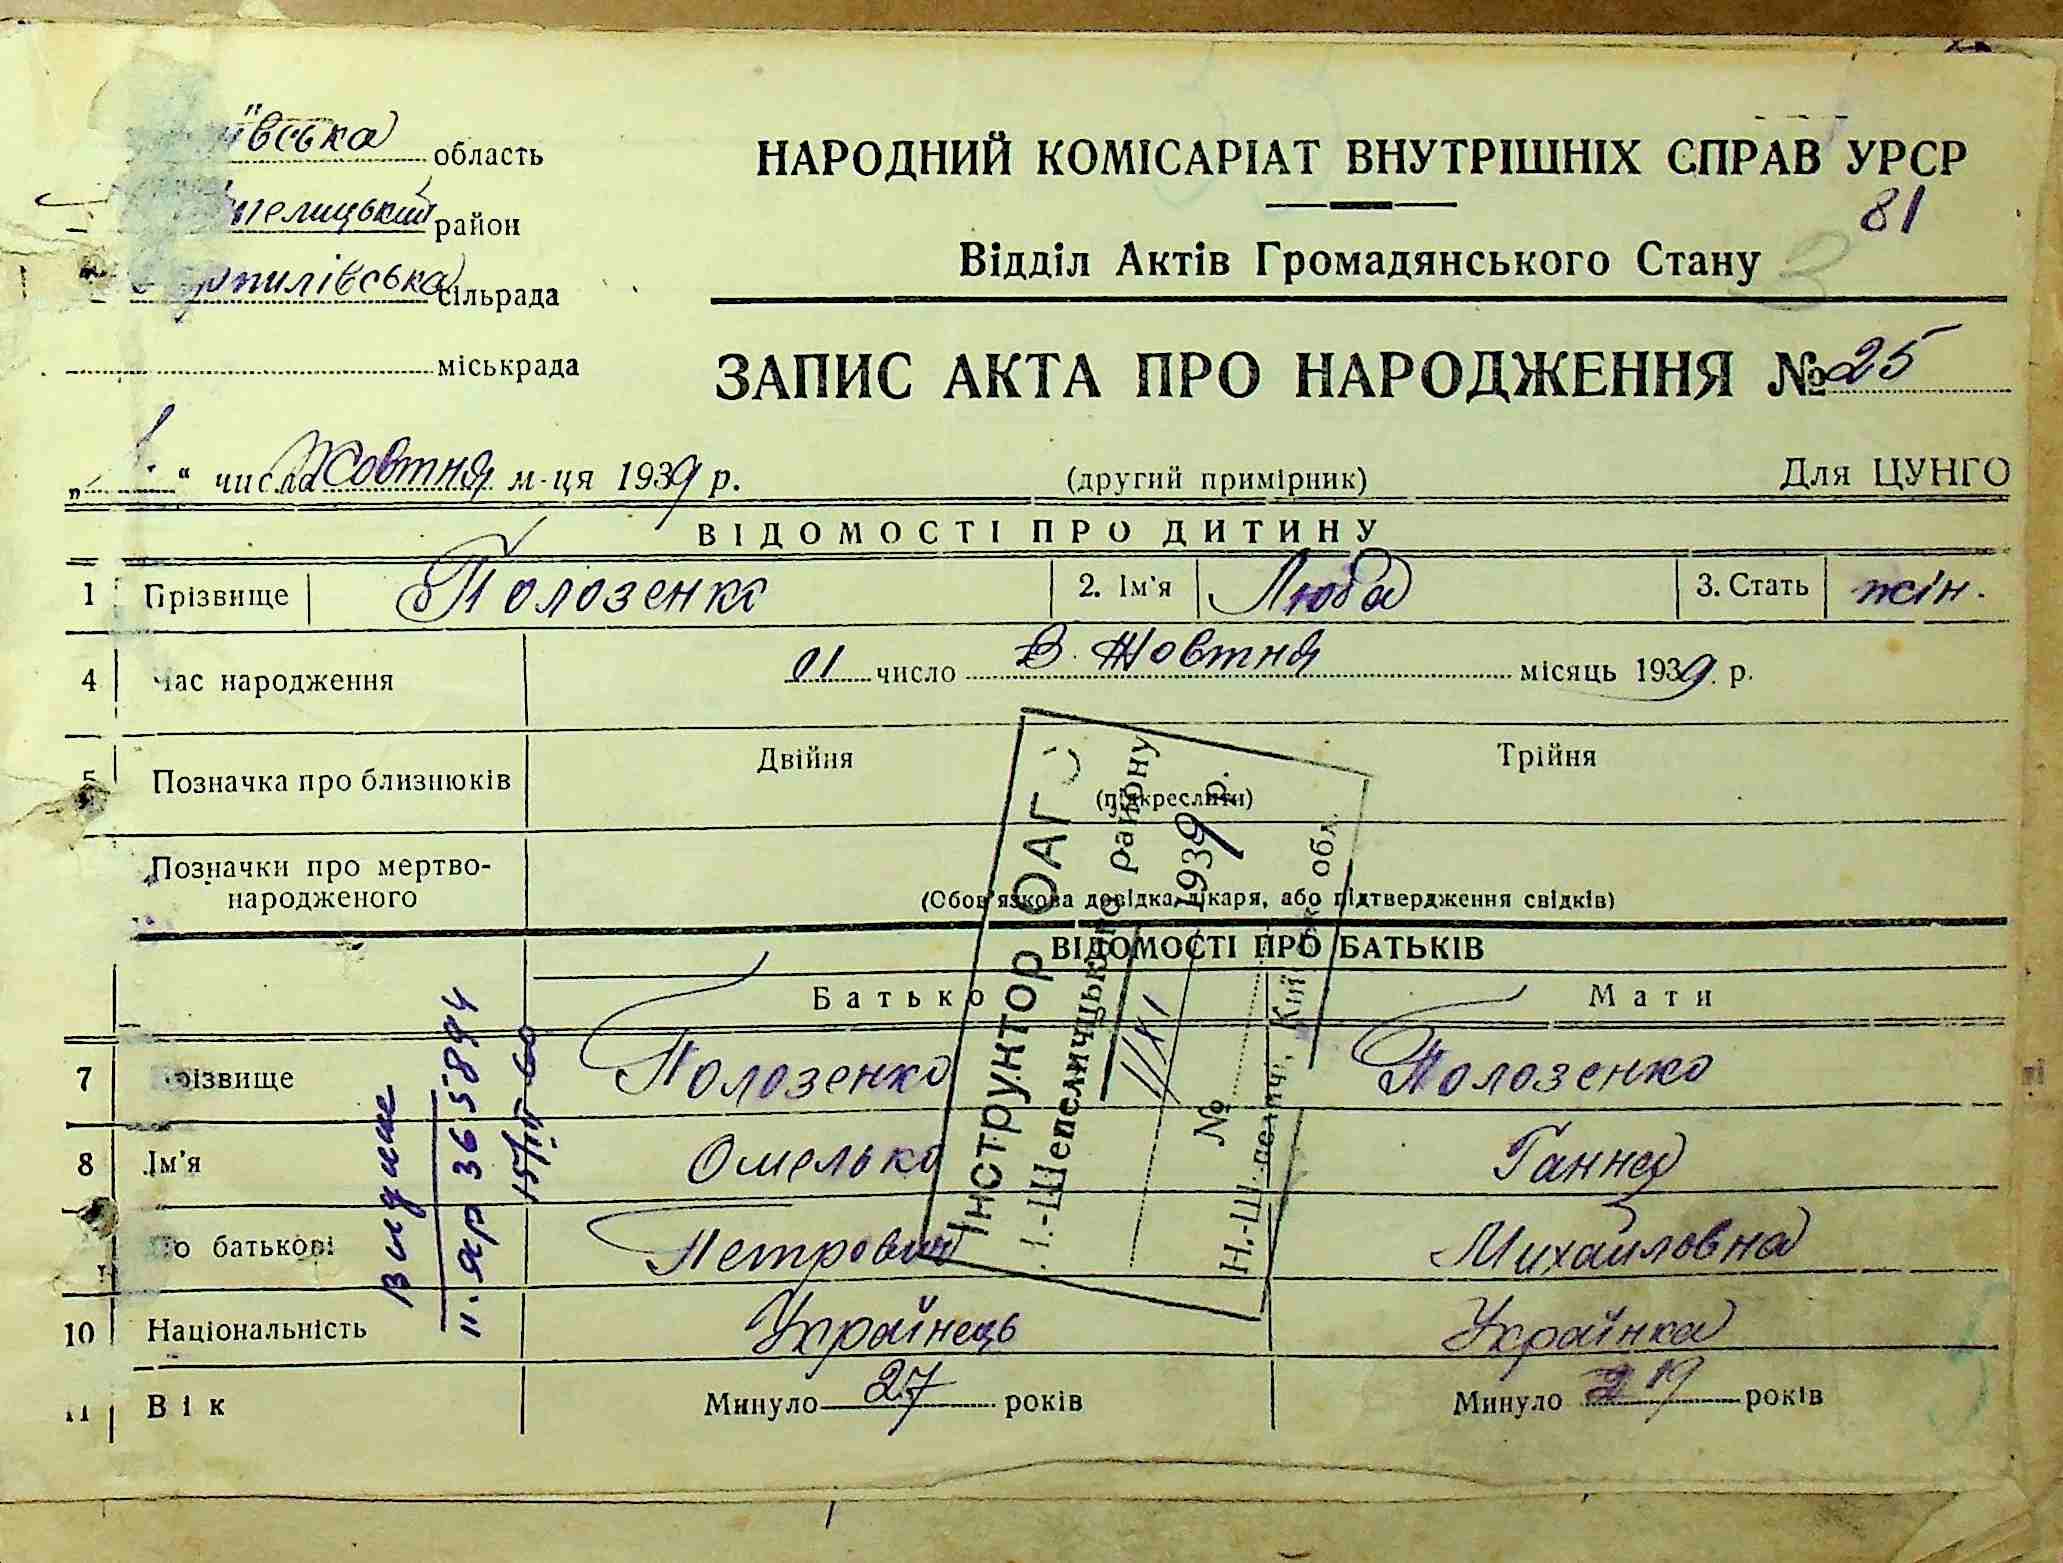 ївська область
НАРОДНИЙ КОМІСАРІАТ ВНУТРІШНІХ СПРАВ УРСР
81
район
Відділ Актів Громадянського Стану
3
сільрада
міськрада
ЗАПИС АКТА ПРО НАРОДЖЕННЯ № 25
„1“ числа Жовтня м-ця 1939 р.
(другий примірник)
Для ЦУНГО
ВІДОМОСТІ ПРО ДИТИНУ
1 Прізвище Полозенко 2. Ім'я Люба 3. Стать жін.
4 Час народження 01 число Жовтня місяць 1939 р.
5 Позначка про близнюків Двійня Трійня
(підкреслити)
Позначки про мертво-
народженого
(Обов'язкова довідка лікаря, або підтвердження свідків)
ВІДОМОСТІ ПРО БАТЬКІВ
Батько Мати
7 Прізвище Полозенко Полозенко
8 Ім'я Омелько Ганна
По батькові Петрович Михайловна
10 Національність Українець Українка
11 Вік Минуло 27 років Минуло 19 років
Інструктор ОАГС
Н.-Шепелицького району
11/XI 1939 р.
№
Н.-Шепелич, Київ обл.
II-ЯР 365894
15/III-60